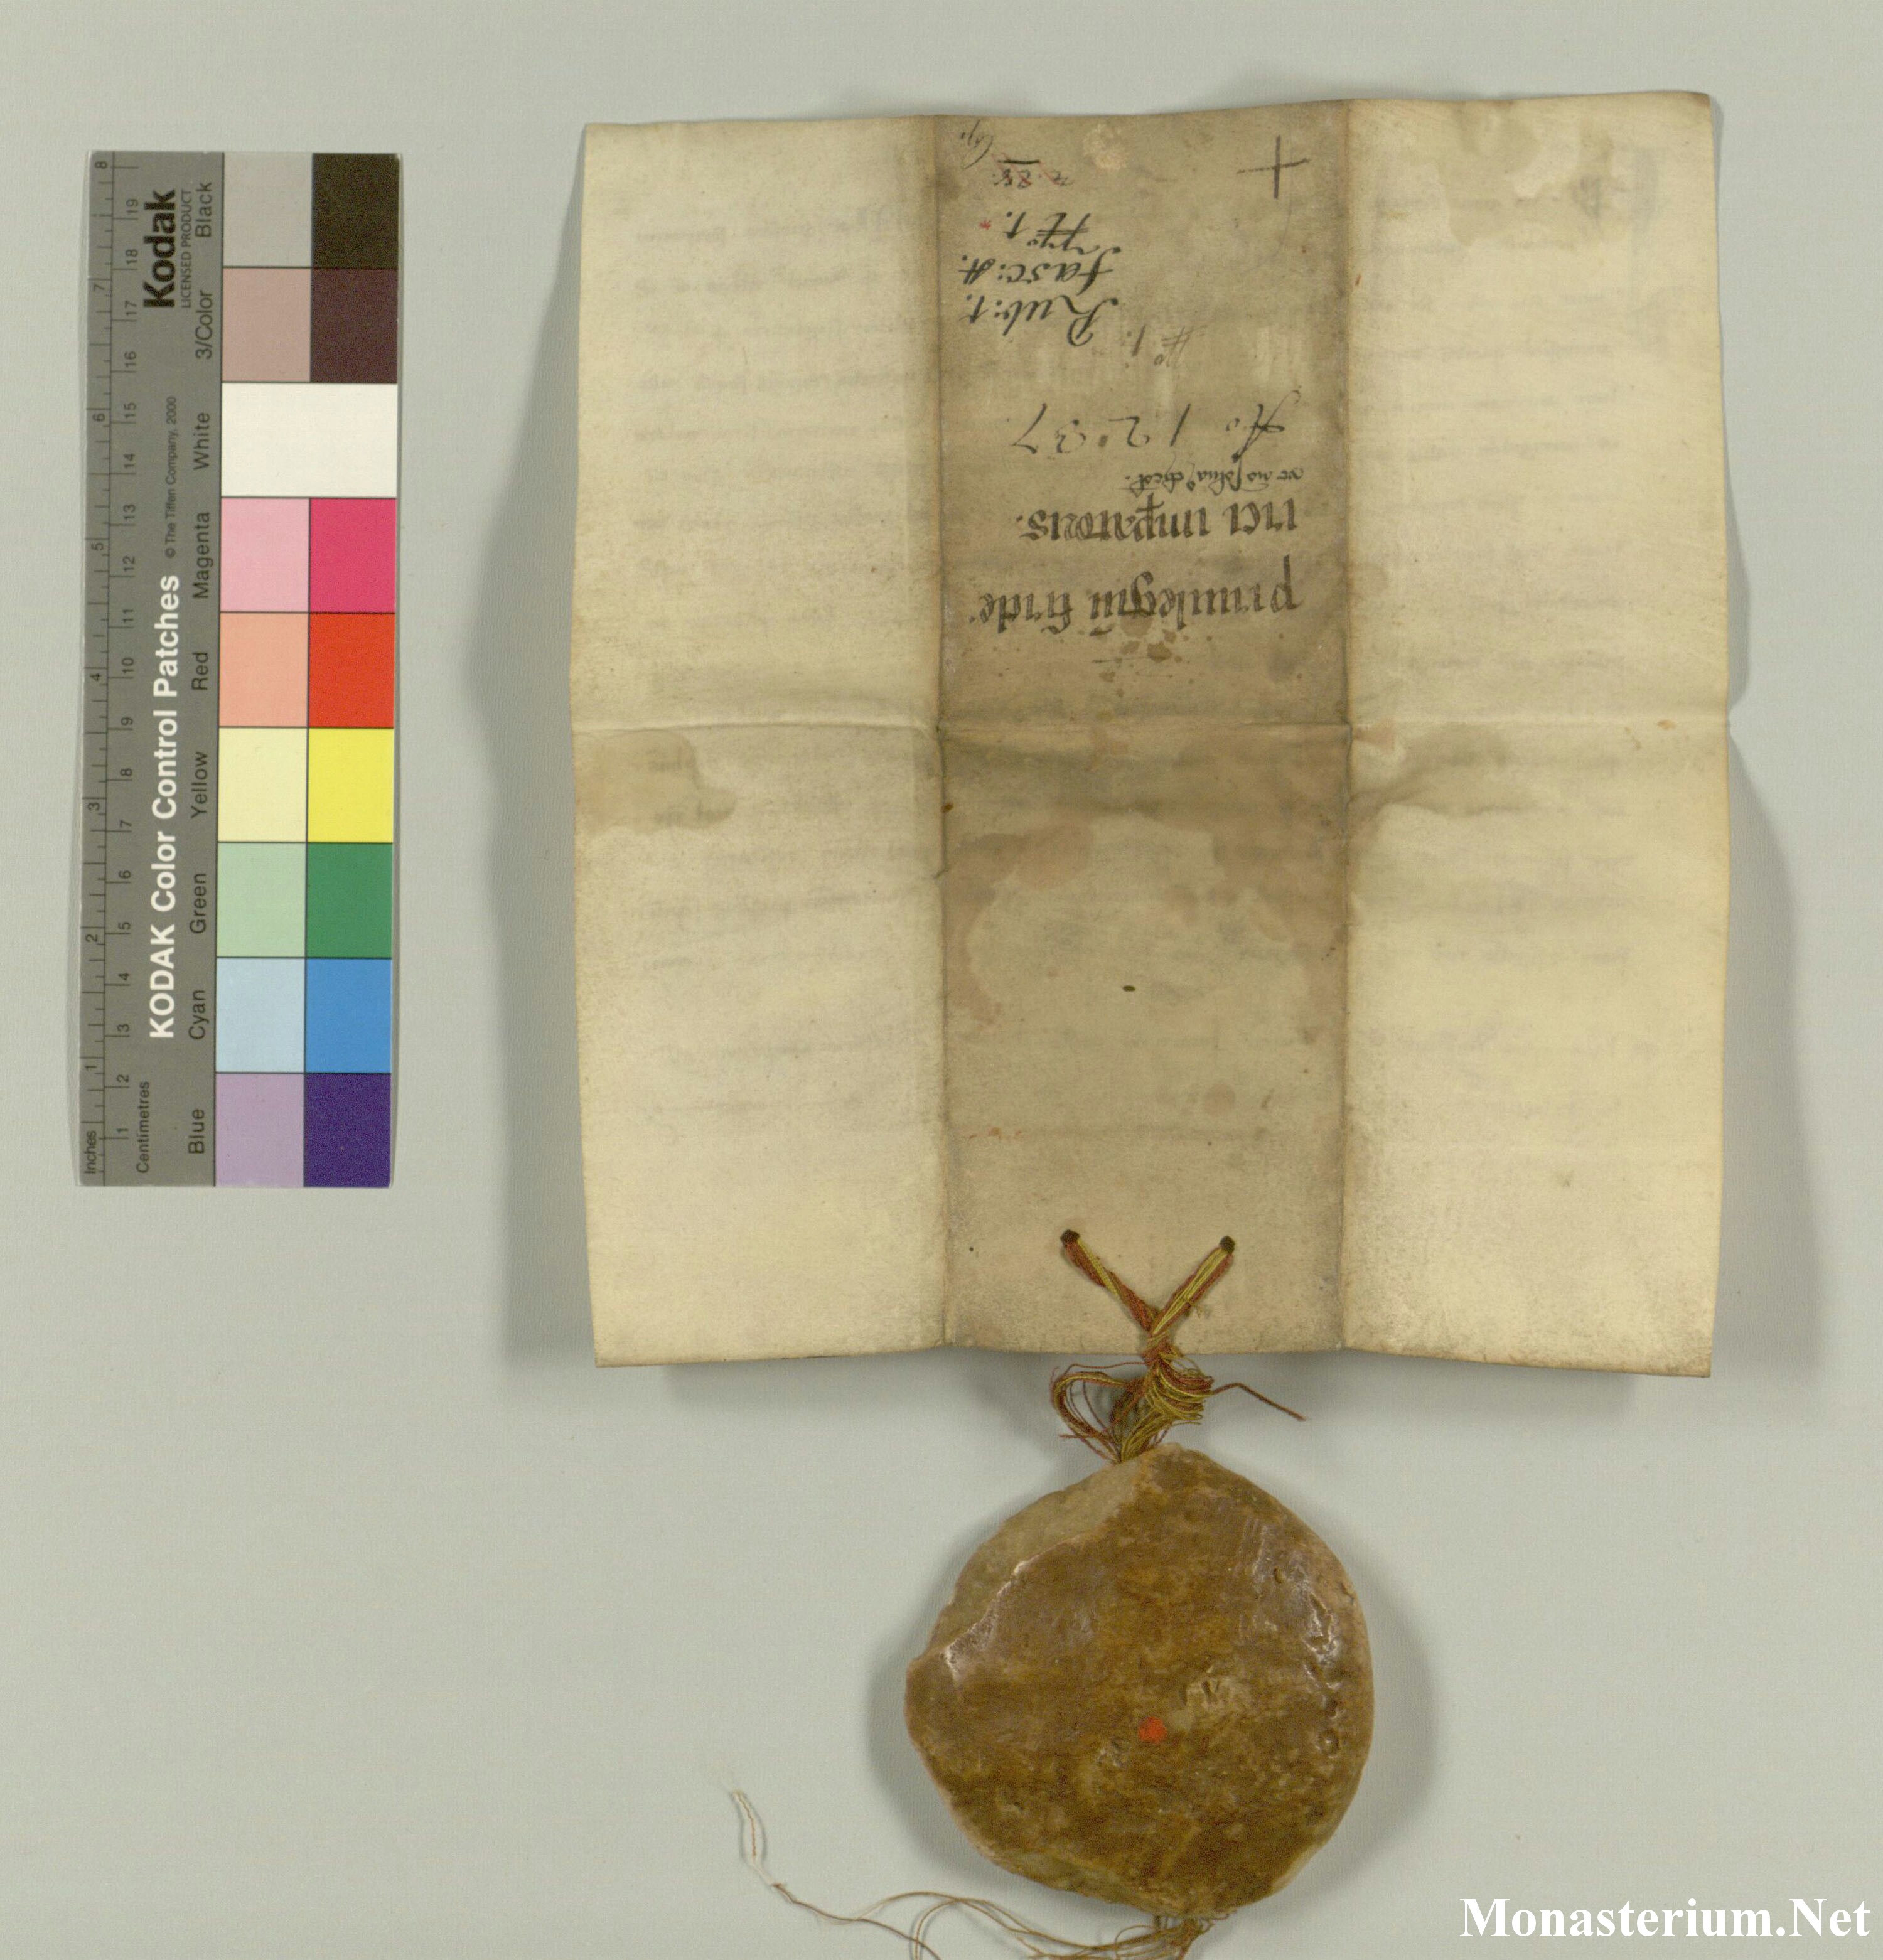 priuilegiu fride
rici impatoris.
Ao 1237
No 1.
Rub: 1.
fasc: A.
No 1.
KODAK Color Control Patches
© The Tiffen Company, 2000
Kodak
LICENSED PRODUCT
Inches
1 2 3 4 5 6 7 8
Centimetres
1 2 3 4 5 6 7 8 9 10 11 12 13 14 15 16 17 18 19
Blue Cyan Green Yellow Red Magenta White 3/Color Black
Monasterium.Net